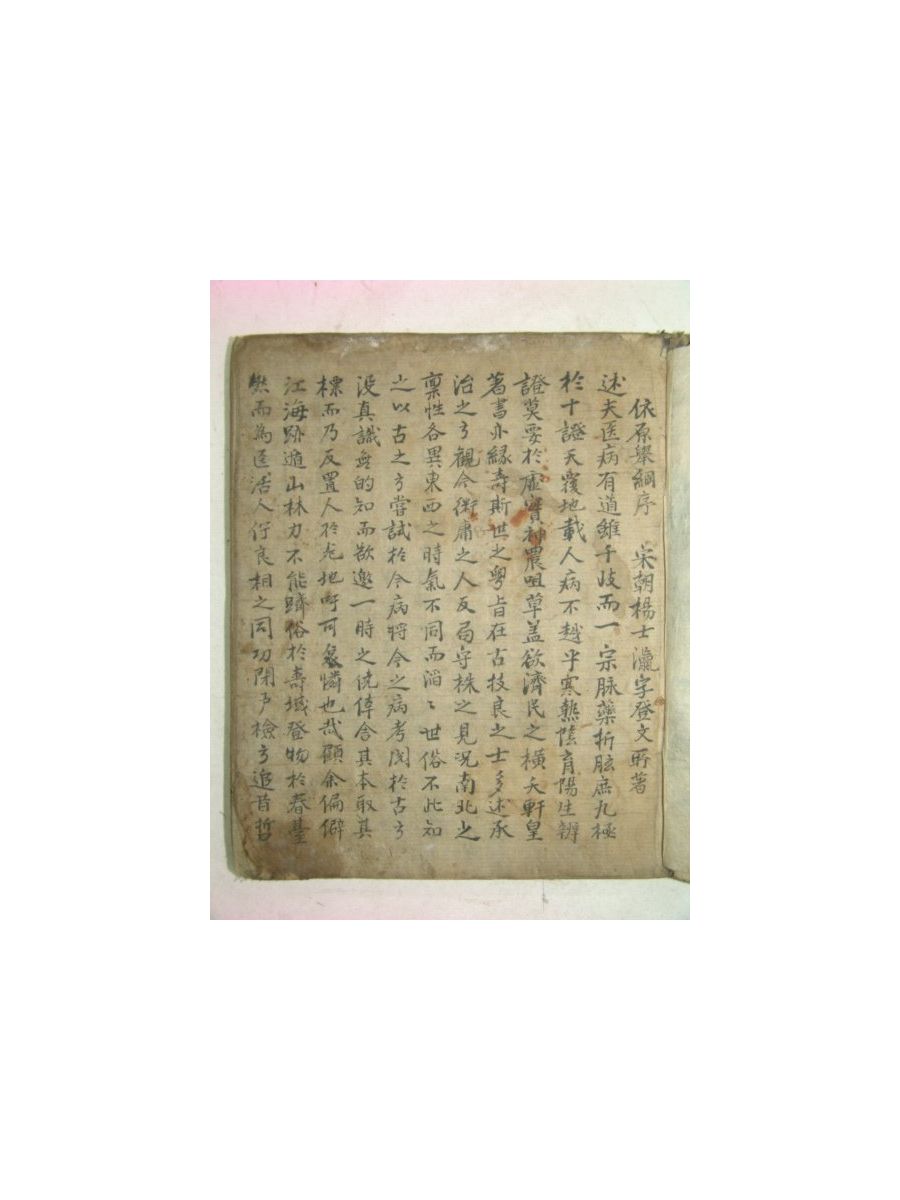 依原擧綱序 宋朝楊士瀛字登文所著
述夫医病有道雖千歧而一宗脉藥析肱庶九極
於十證天覆地載人病不越乎寒熱陰育陽生辨
證莫要於虛實神農咀草盖欲濟民之橫夭軒皇
著書亦緣壽斯世之粤旨在古技良之士多述承
治之方觀今術庸之人反局守株之見况南北之
禀性各異東西之時氣不同而滔〻世俗不此知
之以古之方嘗試於今病將今之病考閱於古方
没真識無的知而欲邀一時之侥倖舍其本取其
標而乃反置人於死地吁可哀憐也哉顧余偏僻
江海跡遁山林力不能躋俗於壽域登物於春臺
然而為医活人侔良相之同功閉户檢方追昔哲